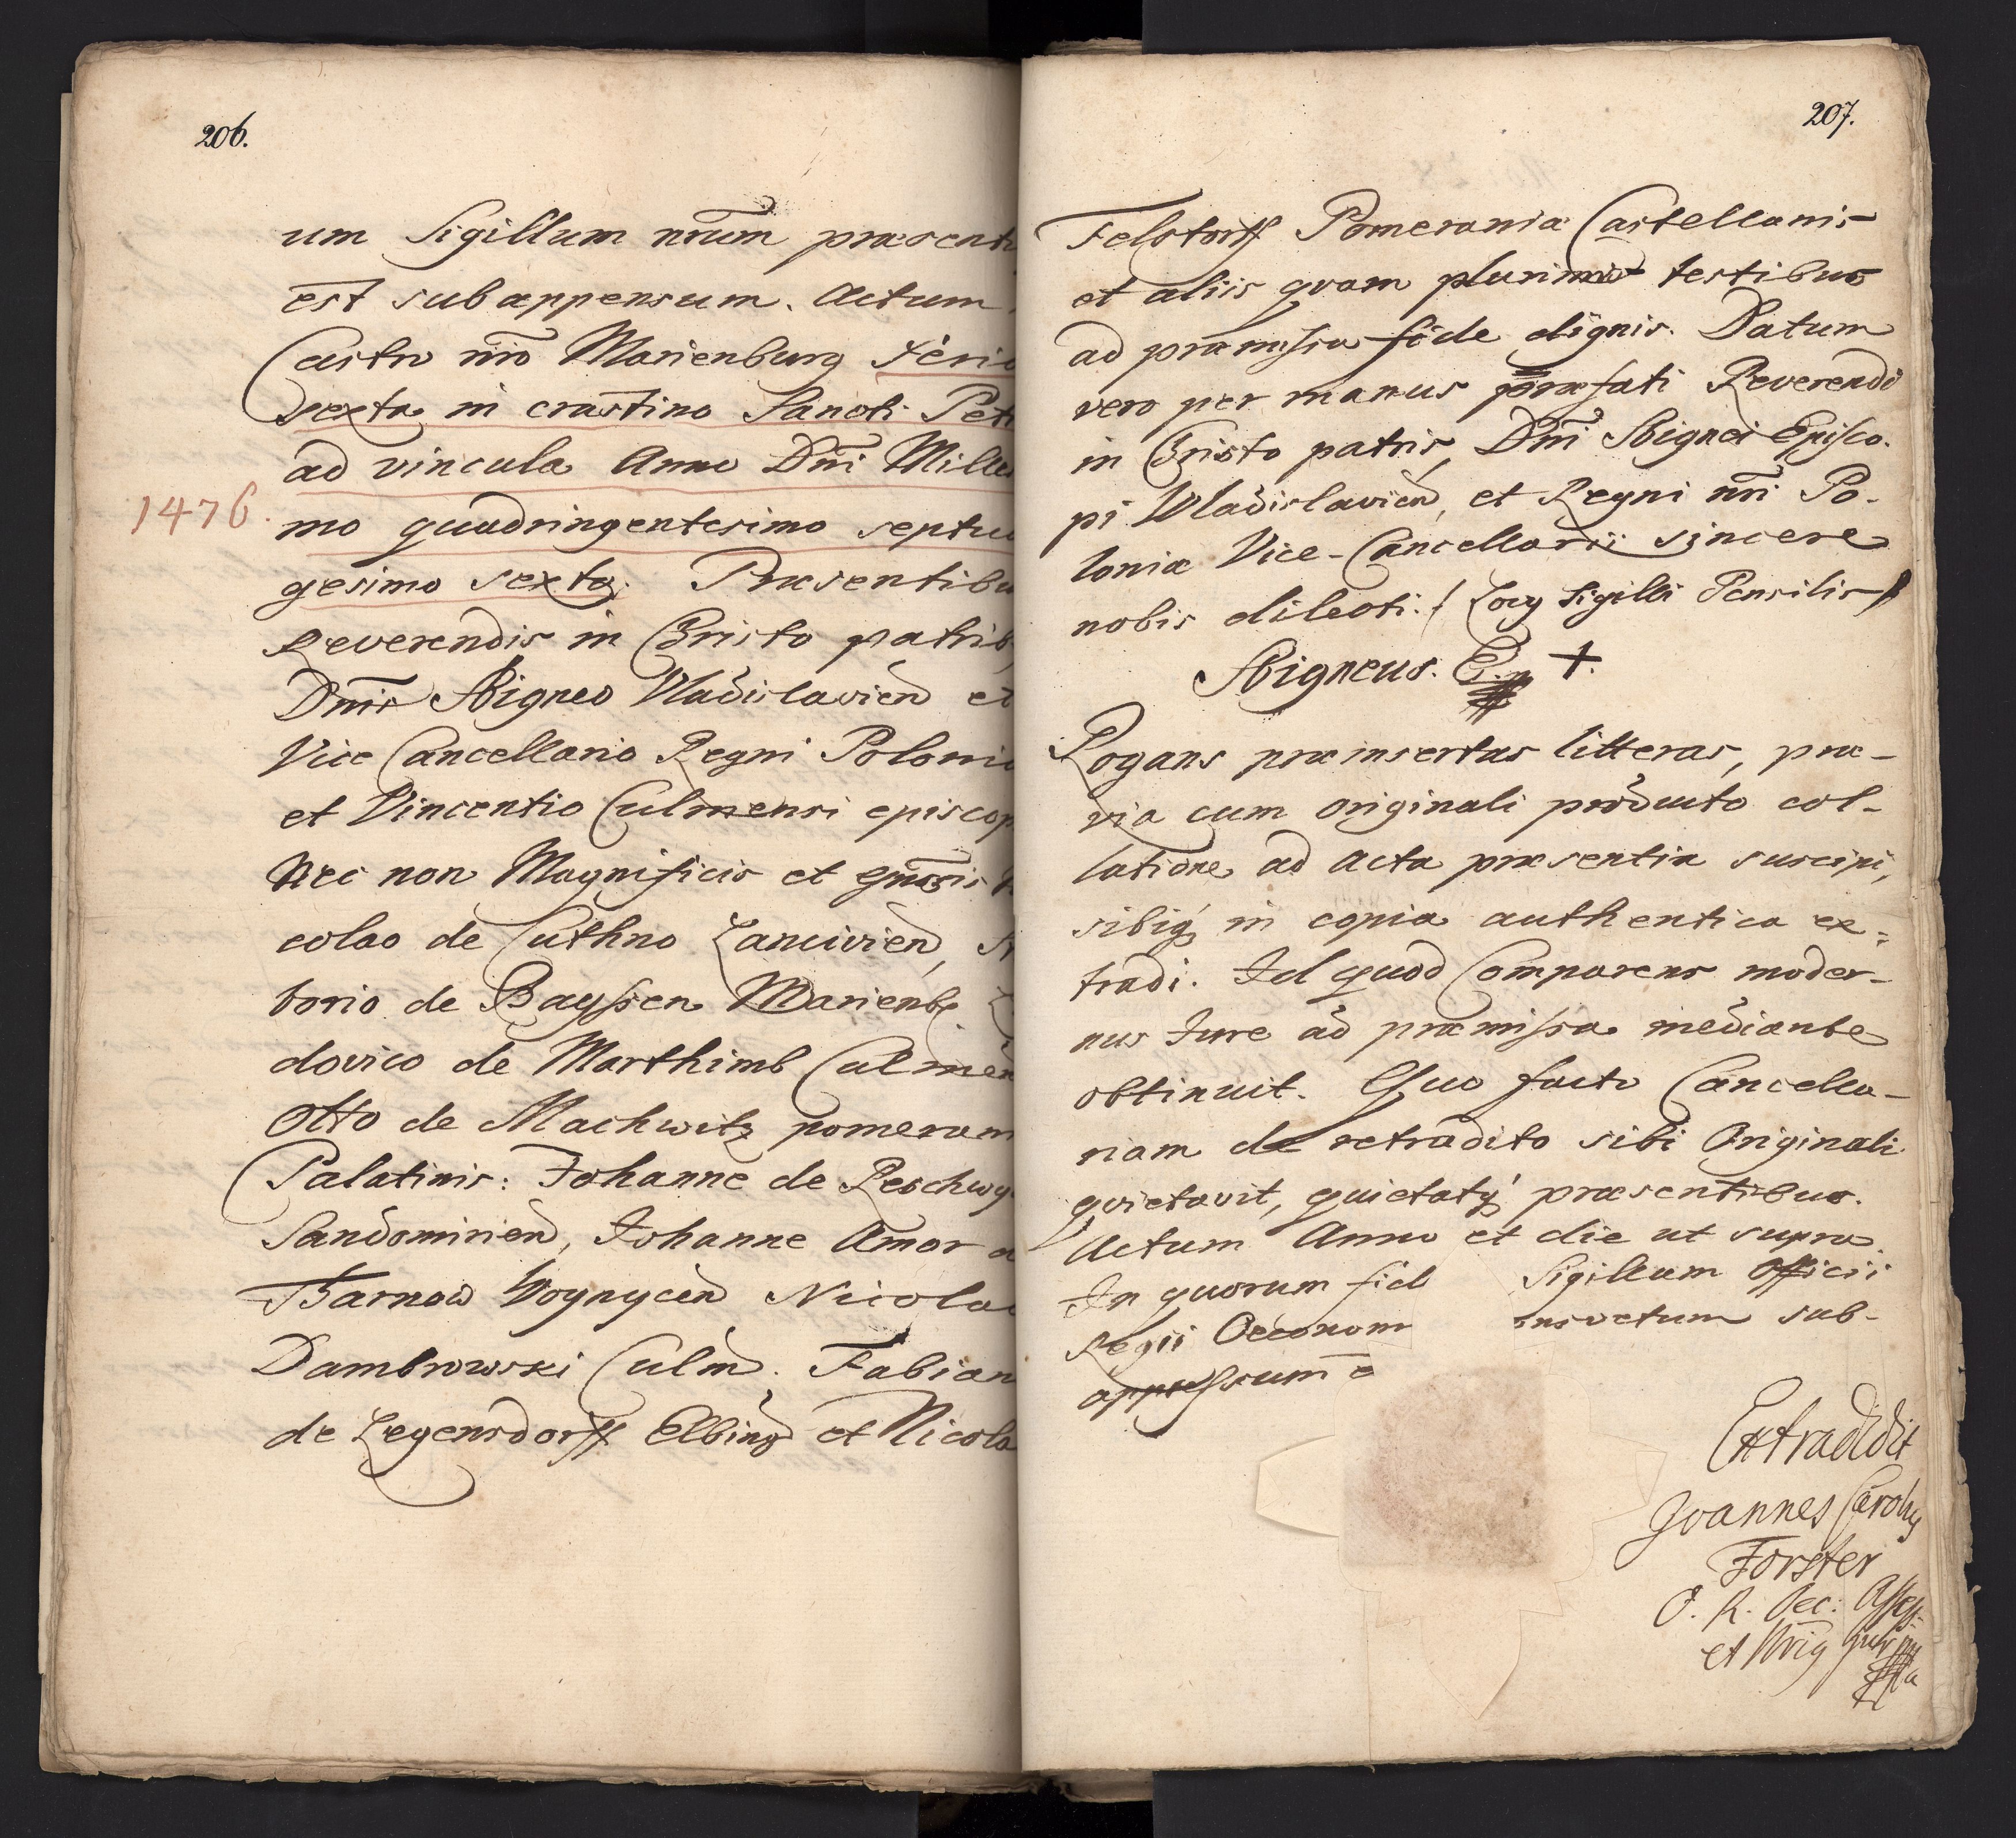 206.
um Sigillum nrum præsent
est subappensum. Actum
Castro nro Marienburg Feri
sexta in crastino Sancti Pet
ad vincula Anno Dni Mille
1476.
mo quadringentesimo septu
gesimo sexto. Præsentibu
Reverendis in Christo patrib
Dnis Sbigneo Vladislavien et
Vice Cancellario Regni Poloni
et Vincentio Culmensi episcop
Nec non Magnificis et gnosis
colao de Cuthno Lancivien,
borio de Baysen Marienb.
dovico de Marthimb Culmen
Otto de Machwitz pomeran
Palatinis: Johanne de Reschwy
Sandomirien, Johanne Amor
Tarnow Woynycen Nicola
Dambrowski Culm. Fabian
de Legensdorff Elbing et Nicola
207.
Felstorff Pomeraniæ Castellanis
et aliis quam plurimis testibus
ad præmissa fide dignis. Datum
vero per manus præfati Reverendi
in Christo patris, Dni Sbignei Episco-
pi Wladislavien, et Regni nri Po-
loniæ Vice-Cancellarii sincere
nobis dilecti. / Locg Sigilli Pensilis /
Sbigneus. Ep +.
Rogans præinsertas litteras, præ-
via cum originali producto col-
latione ad Acta præsentia suscipi,
sibiq in copia authentica ex-
tradi. Id quod Comparens moder-
nus Jure ad præmissa mediante
obtinuit. Quo facto Cancella-
riam de retradito sibi Originali
quietavit, quietatq præsentibus.
Actum Anno et die ut supra.
In quorum fid Sigillum Officii
Regii Oeconom nsvetum sub-
appressum e
Extradidit
Joannes Carolg
Forster
O. R. Oec: Assess: